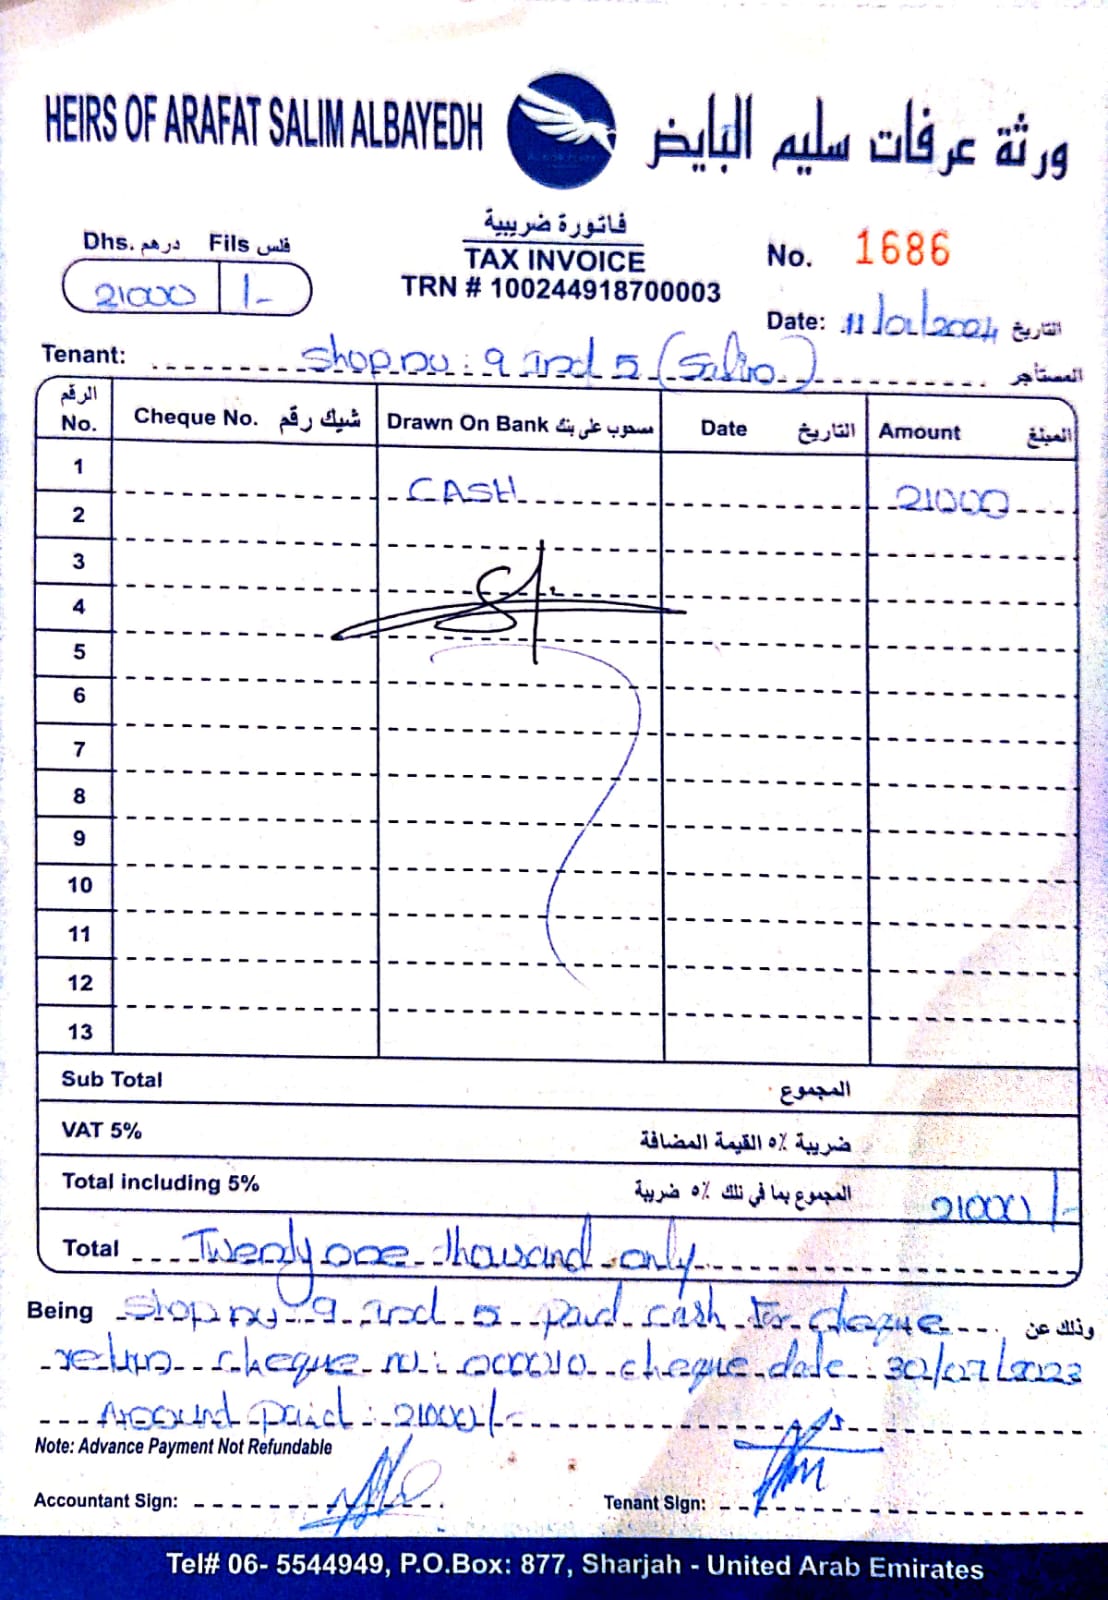 HEIRS OF ARAFAT SALIM ALBAYEDH ورثة عرفات سليم البايض
فاتورة ضريبية
TAX INVOICE
TRN # 100244918700003
Dhs. درهم Fils فلس
21000 /-
No. 1686
Date: 11/01/2024 التاريخ
Tenant: Shop nu: 9 and 5 ( ) المستأجر
الرقم No. Cheque No. شيك رقم Drawn On Bank مسحوب على بنك Date التاريخ Amount المبلغ
1 CASH 21000
2
3
4
5
6
7
8
9
10
11
12
13
Sub Total المجموع
VAT 5% ضريبة ٥٪ القيمة المضافة
Total including 5% المجموع بما في ذلك ٥٪ ضريبة 21000/-
Total Twenty one thousand only
Being Shop nu 9 and 5 paid cash for cheque وذلك عن
return cheque nu: 000010 cheque date: 30/07/2023
Amound paid: 21000/-
Note: Advance Payment Not Refundable
Accountant Sign: Tenant Sign:
Tel# 06- 5544949, P.O.Box: 877, Sharjah - United Arab Emirates